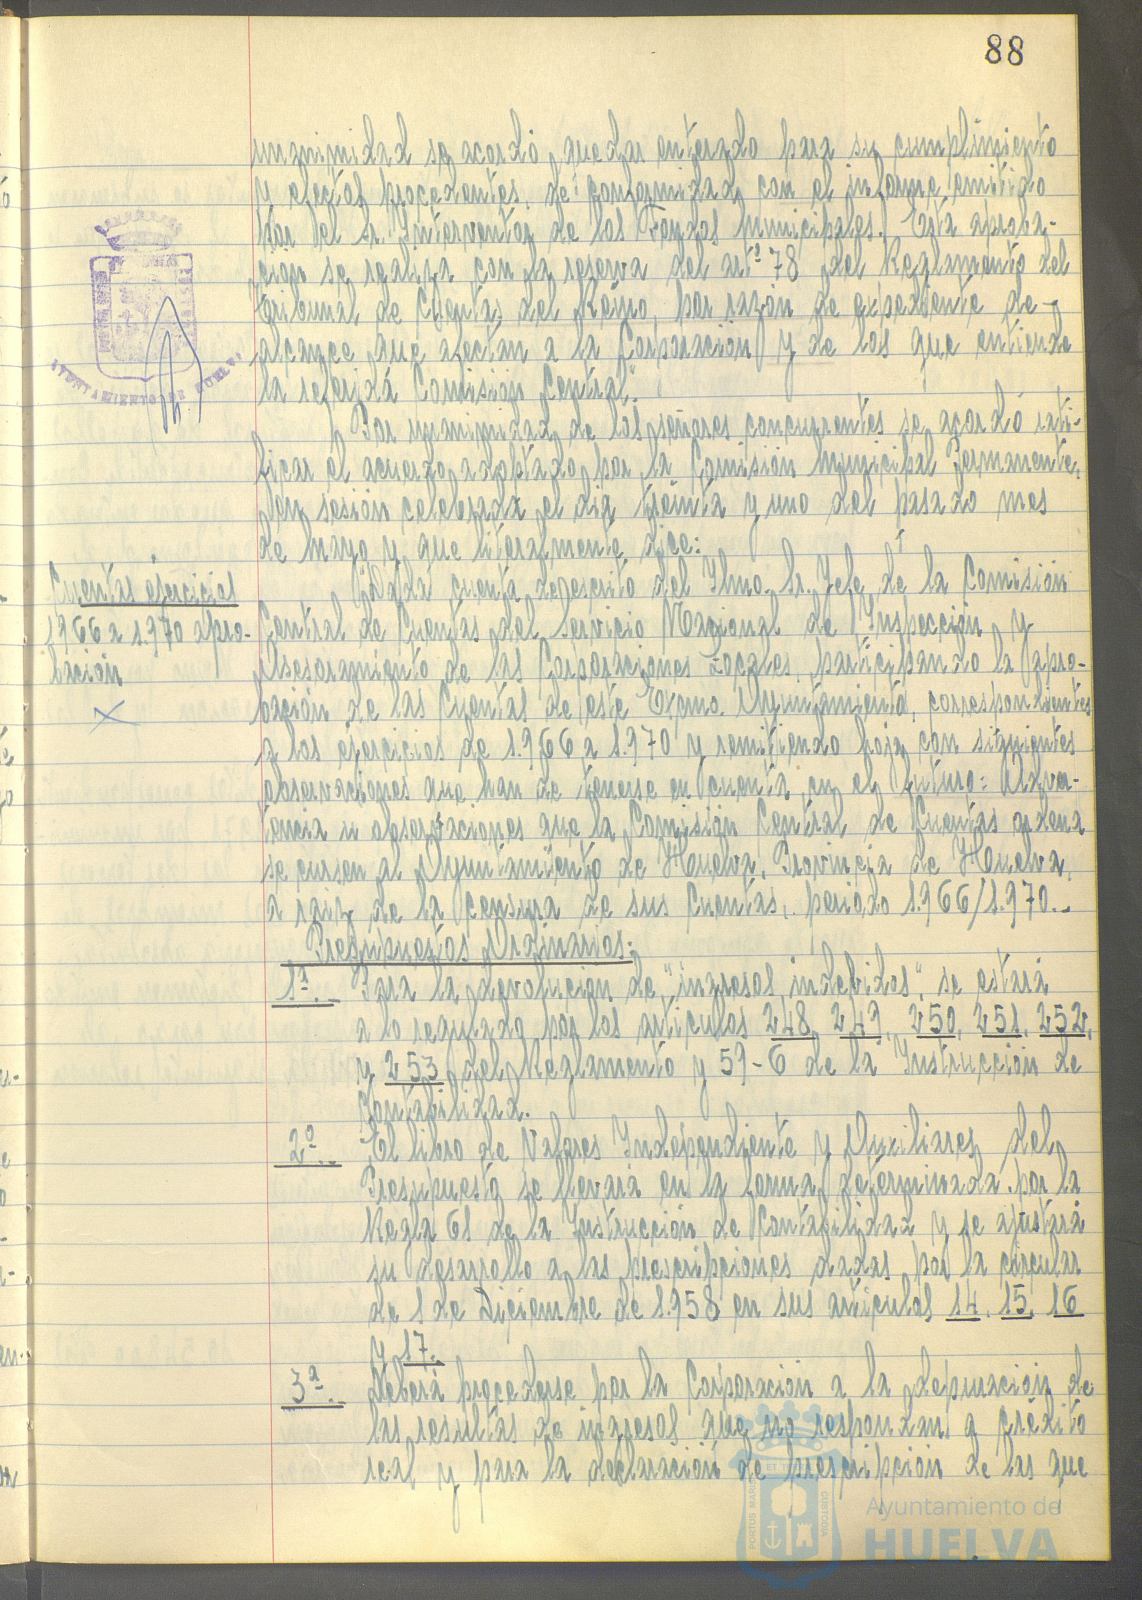 88
unanimidad se acordó quedar enterado para su cumplimiento
y efectos procedentes, de conformidad con el informe emitido
por el Sr. Interventor de los Fondos Municipales. Esta aproba-
ción se realiza con la reserva del artº 78 del Reglamento del
Tribunal de Cuentas del Reino, por razón de expediente de
alcance que afectan a la Corporación y de los que entiende
la referida Comisión Central".
AYUNTAMIENTO DE HUELVA
Por unanimidad de los señores concurrentes se acordó rati-
ficar el acuerdo adoptado por la Comisión Municipal Permanente,
en sesión celebrada el dia treinta y uno del pasado mes
de mayo y que literalmente dice:
Cuentas ejercicios
1.966 a 1.970 apro-
bación
"Dada cuenta de escrito del Ilmo. Sr. Jefe de la Comisión
Central de Cuentas del Servicio Nacional de Inspección y
Asesoramiento de las Corporaciones Locales, participando la apro-
bación de las Cuentas de este Excmo. Ayuntamiento, correspondientes
a los ejercicios de 1.966 a 1.970 y remitiendo hoja con siguientes
observaciones que han de tenerse en cuenta en el futuro: Adver-
tencia u observaciones que la Comisión Central de Cuentas ordena
se cursen al Ayuntamiento de Huelva, Provincia de Huelva,
a raiz de la censura de sus Cuentas, periodo 1.966/1.970.-
Presupuestos Ordinarios:
1ª.- Para la devolución de "ingresos indebidos", se estará
a lo regulado por los artículos 248, 249, 250, 251, 252,
y 253 del Reglamento y 59-6 de la Instrucción de
Contabilidad.
2º.- El libro de Valores Independiente y Auxiliares del
Presupuesto se llevará en la forma determinada por la
Regla 61 de la Instrucción de Contabilidad y se ajustará
su desarrollo a las prescripciones dadas por la circular
de 1 de Diciembre de 1.958 en sus artículos 14, 15, 16
y 17.
3ª.- Deberá procederse por la Corporación a la depuración de
las resultas de ingresos que no respondan a crédito
real y para la declaración de prescripción de las que
PORTUS MARIS ET TERRAE CUSTODIA
Ayuntamiento de
HUELVA